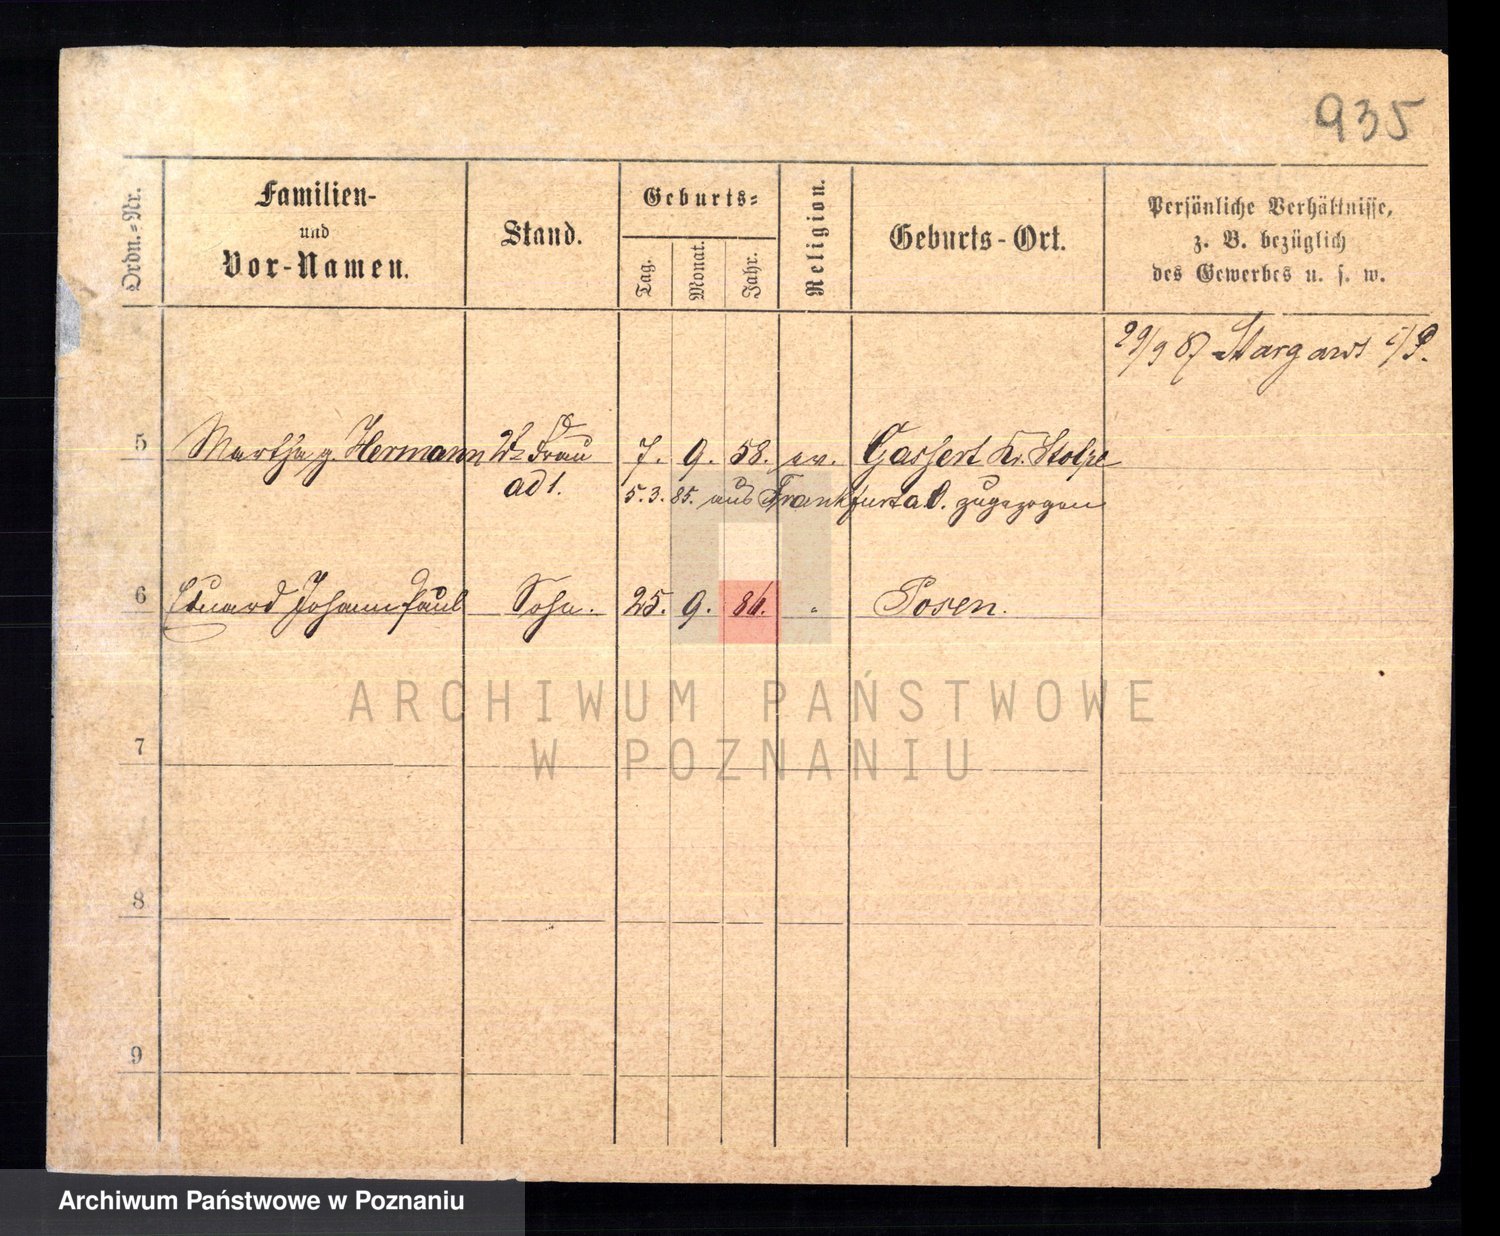 935
Ordn.-Nr.
Familien-
und
Vor-Namen.
Stand.
Geburts-
Tag.
Monat.
Jahr.
Religion.
Geburts-Ort.
Persönliche Verhältnisse,
z. B. bezüglich
des Gewerbes u. s. w.
29/9 87 Stargard i/P.
5 Martha g. Hermann 2te Frau 7. 9. 58. ev. Kr. Stolpe
ad 1. 5. 3. 85. aus Frankfurt a O. zugezogen
6 Eduard Johann Paul Sohn. 25. 9. 86. " Posen.
ARCHIWUM PAŃSTWOWE
W POZNANIU
7
8
9
Archiwum Państwowe w Poznaniu